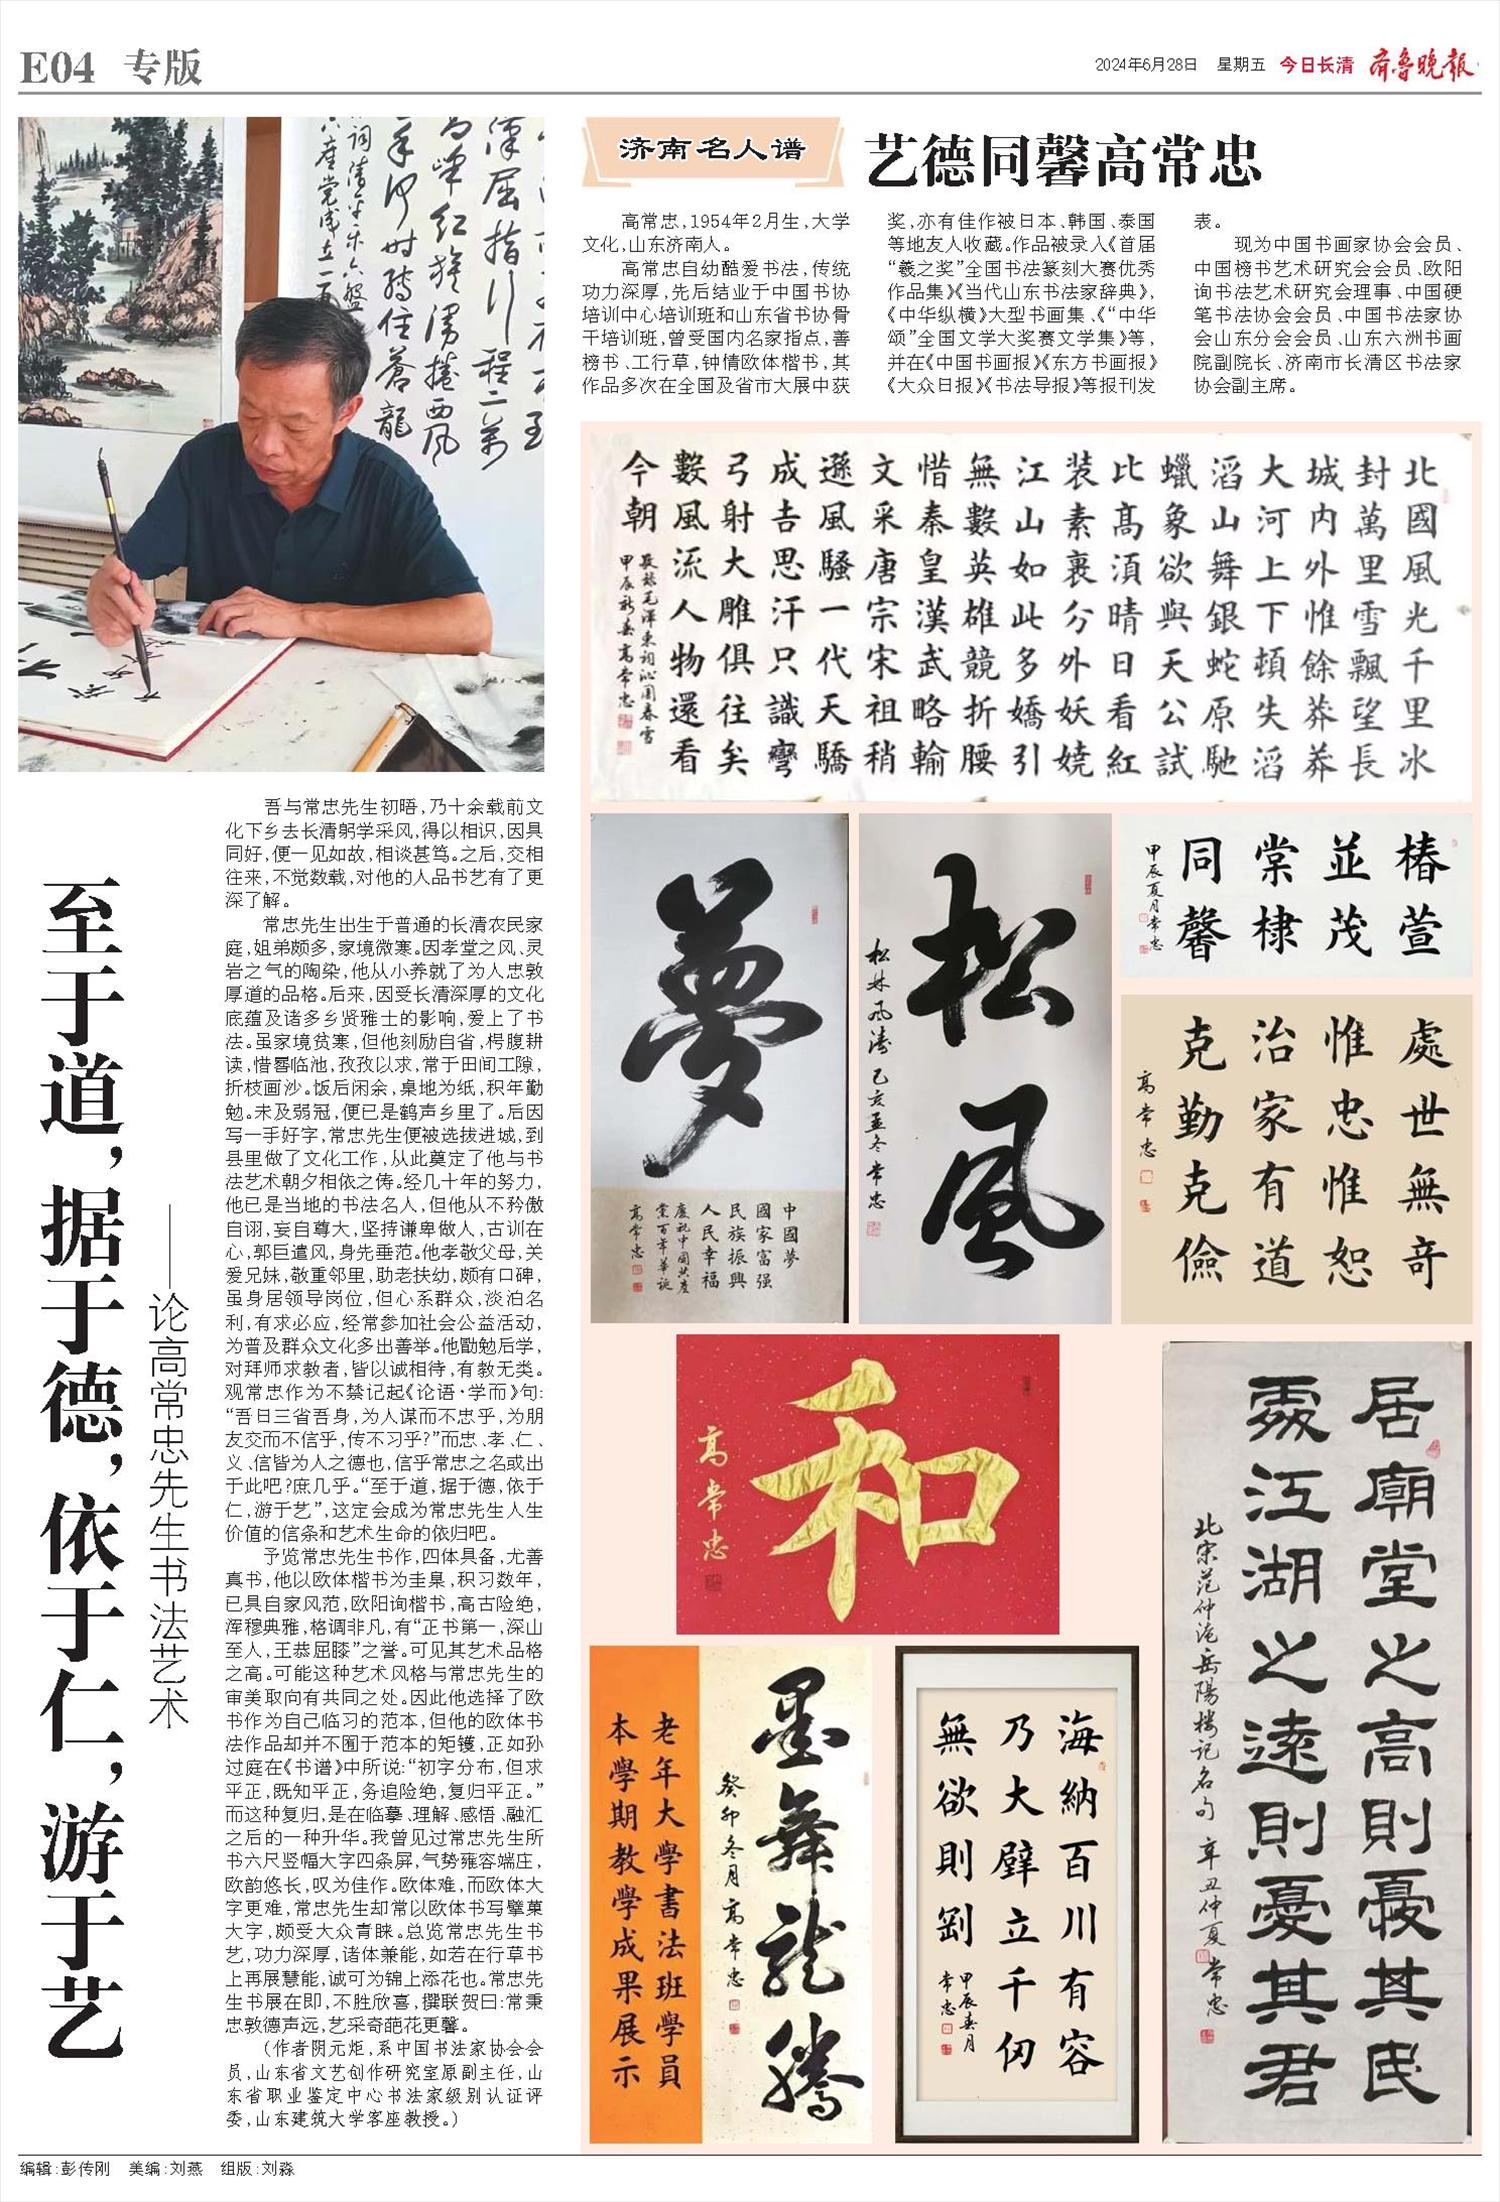 E04 专版
2024年6月28日 星期五 今日长清 齐鲁晚报
济南名人谱
艺德同馨高常忠
高常忠,1954年2月生,大学
文化,山东济南人。
高常忠自幼酷爱书法,传统
功力深厚,先后结业于中国书协
培训中心培训班和山东省书协骨
干培训班,曾受国内名家指点,善
榜书、工行草,钟情欧体楷书,其
作品多次在全国及省市大展中获
奖,亦有佳作被日本、韩国、泰国
等地友人收藏。作品被录入《首届
“羲之奖”全国书法篆刻大赛优秀
作品集》《当代山东书法家辞典》,
《中华纵横》大型书画集、《“中华
颂”全国文学大奖赛文学集》等,
并在《中国书画报》《东方书画报》
《大众日报》《书法导报》等报刊发
表。
现为中国书画家协会会员、
中国榜书艺术研究会会员、欧阳
询书法艺术研究会理事、中国硬
笔书法协会会员、中国书法家协
会山东分会会员、山东六洲书画
院副院长、济南市长清区书法家
协会副主席。
至于道,据于德,依于仁,游于艺
——论高常忠先生书法艺术
吾与常忠先生初晤,乃十余载前文
化下乡去长清躬学采风,得以相识,因具
同好,便一见如故,相谈甚笃。之后,交相
往来,不觉数载,对他的人品书艺有了更
深了解。
常忠先生出生于普通的长清农民家
庭,姐弟颇多,家境微寒。因孝堂之风、灵
岩之气的陶染,他从小养就了为人忠敦
厚道的品格。后来,因受长清深厚的文化
底蕴及诸多乡贤雅士的影响,爱上了书
法。虽家境贫寒,但他刻励自省,枵腹耕
读,惜晷临池,孜孜以求,常于田间工隙,
折枝画沙。饭后闲余,桌地为纸,积年勤
勉。未及弱冠,便已是鹤声乡里了。后因
写一手好字,常忠先生便被选拔进城,到
县里做了文化工作,从此奠定了他与书
法艺术朝夕相依之俦。经几十年的努力,
他已是当地的书法名人,但他从不矜傲
自诩,妄自尊大,坚持谦卑做人,古训在
心,郭巨遣风,身先垂范。他孝敬父母,关
爱兄妹,敬重邻里,助老扶幼,颇有口碑,
虽身居领导岗位,但心系群众,淡泊名
利,有求必应,经常参加社会公益活动,
为普及群众文化多出善举。他勖勉后学,
对拜师求教者,皆以诚相待,有教无类。
观常忠作为不禁记起《论语·学而》句:
“吾日三省吾身,为人谋而不忠乎,为朋
友交而不信乎,传不习乎?”而忠、孝、仁、
义、信皆为人之德也,信乎常忠之名或出
于此吧?庶几乎。“至于道,据于德,依于
仁,游于艺”,这定会成为常忠先生人生
价值的信条和艺术生命的依归吧。
予览常忠先生书作,四体具备,尤善
真书,他以欧体楷书为圭臬,积习数年,
已具自家风范,欧阳询楷书,高古险绝,
浑穆典雅,格调非凡,有“正书第一,深山
至人,王恭屈膝”之誉。可见其艺术品格
之高。可能这种艺术风格与常忠先生的
审美取向有共同之处。因此他选择了欧
书作为自己临习的范本,但他的欧体书
法作品却并不囿于范本的矩镬,正如孙
过庭在《书谱》中所说:“初字分布,但求
平正,既知平正,务追险绝,复归平正。”
而这种复归,是在临摹、理解、感悟、融汇
之后的一种升华。我曾见过常忠先生所
书六尺竖幅大字四条屏,气势雍容端庄,
欧韵悠长,叹为佳作。欧体难,而欧体大
字更难,常忠先生却常以欧体书写擘菓
大字,颇受大众青睐。总览常忠先生书
艺,功力深厚,诸体兼能,如若在行草书
上再展慧能,诚可为锦上添花也。常忠先
生书展在即,不胜欣喜,撰联贺曰:常秉
忠敦德声远,艺采奇葩花更馨。
(作者阴元炬,系中国书法家协会会
员,山东省文艺创作研究室原副主任,山
东省职业鉴定中心书法家级别认证评
委,山东建筑大学客座教授。)
北國風光千里冰
封萬里雪飄望長
城内外惟餘莽莽
大河上下頓失滔
滔山舞銀蛇原馳
蠟象欲與天公試
比高須晴日看紅
装素裹分外妖娆
江山如此多嬌引
無數英雄競折腰
惜秦皇漢武略輸
文采唐宗宋祖稍
遜風騷一代天驕
成吉思汗只識彎
弓射大雕俱往矣
數風流人物還看
今朝
敬録毛澤東詞沁園春雪
甲辰新春高常忠
夢
中國夢
國家富强
民族振興
人民幸福
慶祝中國共產
黨百年華誕
高常忠
松風
松林風濤 己亥孟冬常忠
椿萱
並茂
棠棣
同馨
甲辰夏月常忠
處世無奇
惟忠惟恕
治家有道
克勤克儉
高常忠
和
高常忠
居廟堂之高則憂其民
處江湖之遠則憂其君
北宋范仲淹岳陽樓記名句 辛丑仲夏常忠
墨舞龍騰
癸卯冬月高常忠
老年大學書法班學員
本學期教學成果展示
海納百川有容
乃大壁立千仞
無欲則剛
甲辰春月
常忠
编辑:彭传刚 美编:刘燕 组版:刘淼